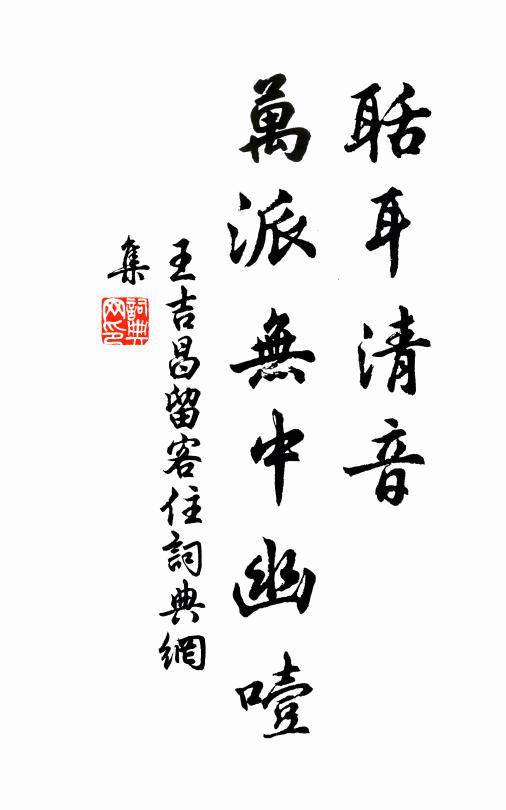 聒耳清音
萬派無中幽噎
王吉昌留客住詞典網
集
詞典
网印